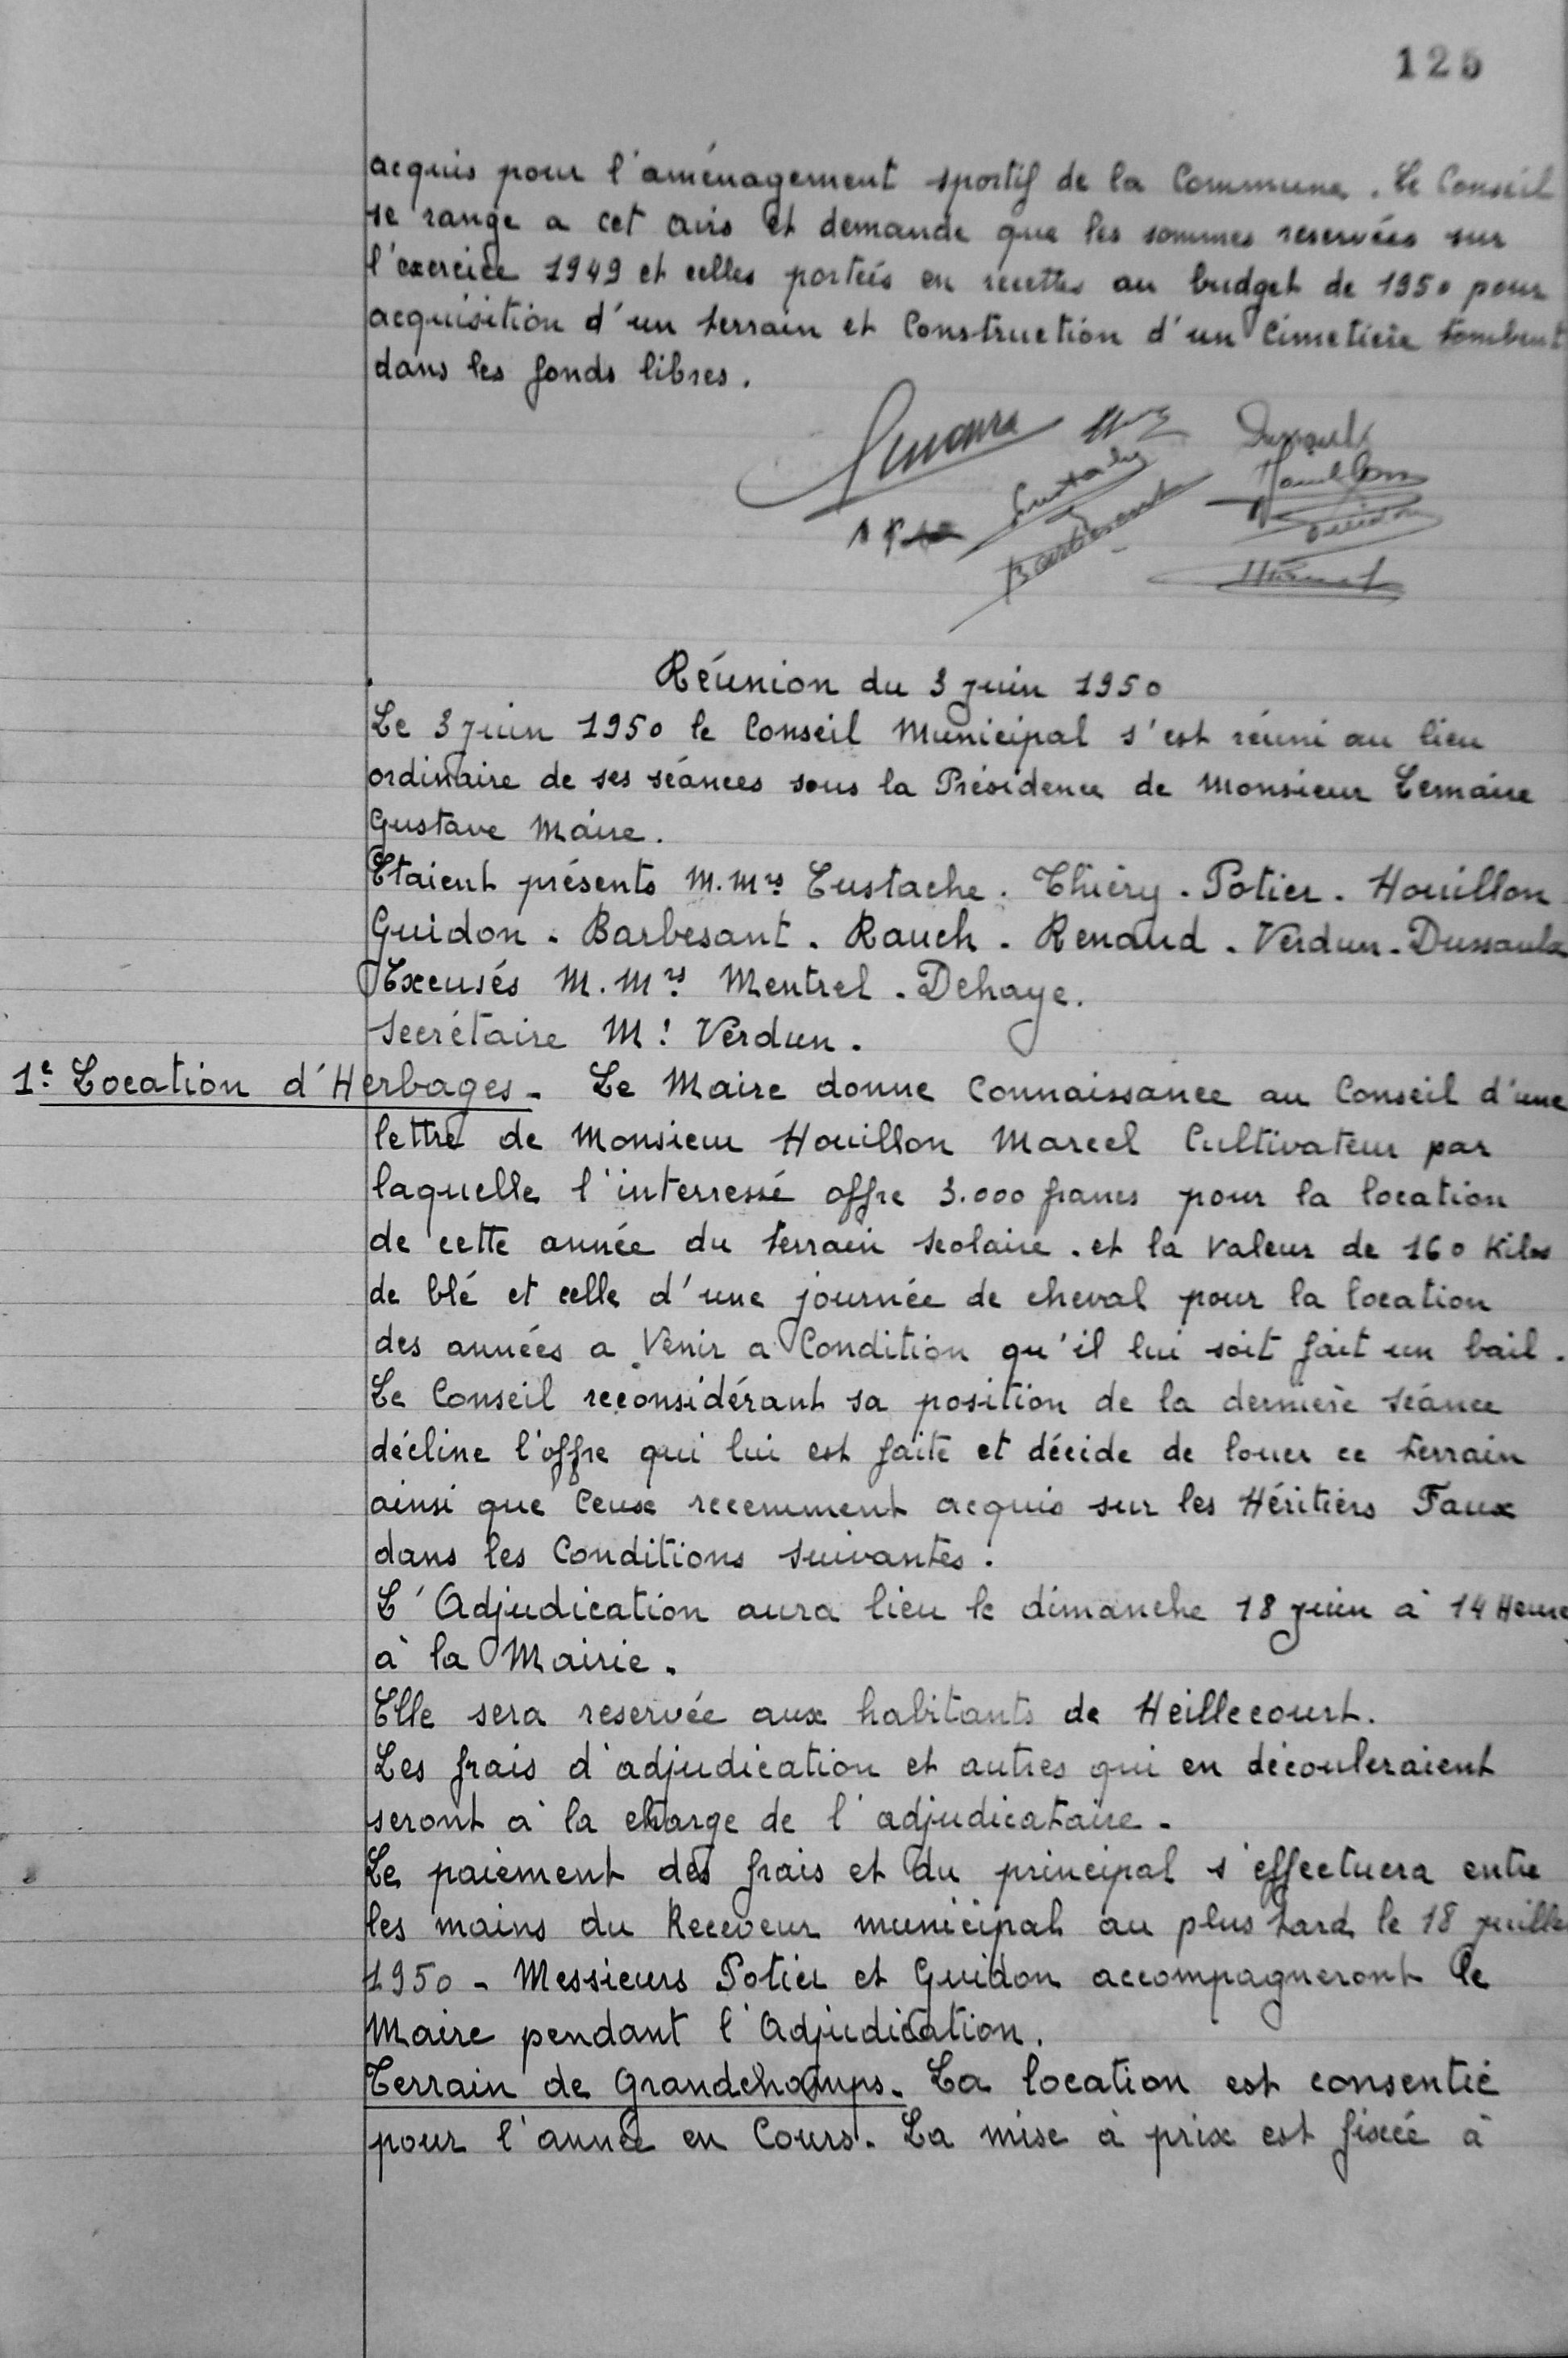 125
acquis pour l'aménagement sportif de la Commune. Le Conseil
se range a cet avis et demande que les sommes reservées sur
l'exercice 1949 et celles portées en recettes au budget de 1950 pour
acquisition d'un terrain et Construction d'un Cimetière tombent
dans les fonds libres.
Barbesant
Réunion du 3 juin 1950
Le 3 juin 1950 le Conseil Municipal s'est réuni au lieu
ordinaire de ses séances sous la Présidence de Monsieur Lemaire
Gustave Maire.
Etaient présents M.Mrs Eustache. Thiéry. Potier. Houillon
Guidon. Barbesant. Rauch. Renaud. Verdun. Dussaulx
Excusés M.Mrs Mentrel. Dehaye.
Secrétaire Mr Verdun.
1e Location d'Herbages. Le Maire donne Connaissance au Conseil d'une
lettre de Monsieur Houillon Marcel Cultivateur par
laquelle l'interressé offre 3.000 francs pour la location
de cette année du terrain scolaire. et la valeur de 160 Kilos
de blé et celle d'une journée de cheval pour la location
des années a Venir a Condition qu'il lui soit fait un bail.
Le Conseil reconsidérant sa position de la dernière séance
décline l'offre qui lui est faite et décide de louer ce terrain
ainsi que Ceux recemment acquis sur les Héritiers Faux
dans les Conditions suivantes.
L'Adjudication aura lieu le dimanche 18 juin à 14 Heure
à la Mairie.
Elle sera reservée aux habitants de Heillecourt.
Les frais d'adjudication et autres qui en découleraient
seront à la charge de l'adjudicataire.
Le paiement des frais et du principal s'effectuera entre
les mains du Receveur municipal au plus tard le 18 juille
1950 - Messieurs Potier et Guidon accompagneront le
Maire pendant l'Adjudication.
Terrain de Grandchamps. La location est consentie
pour l'année en Cours. La mise à prix est fixée à